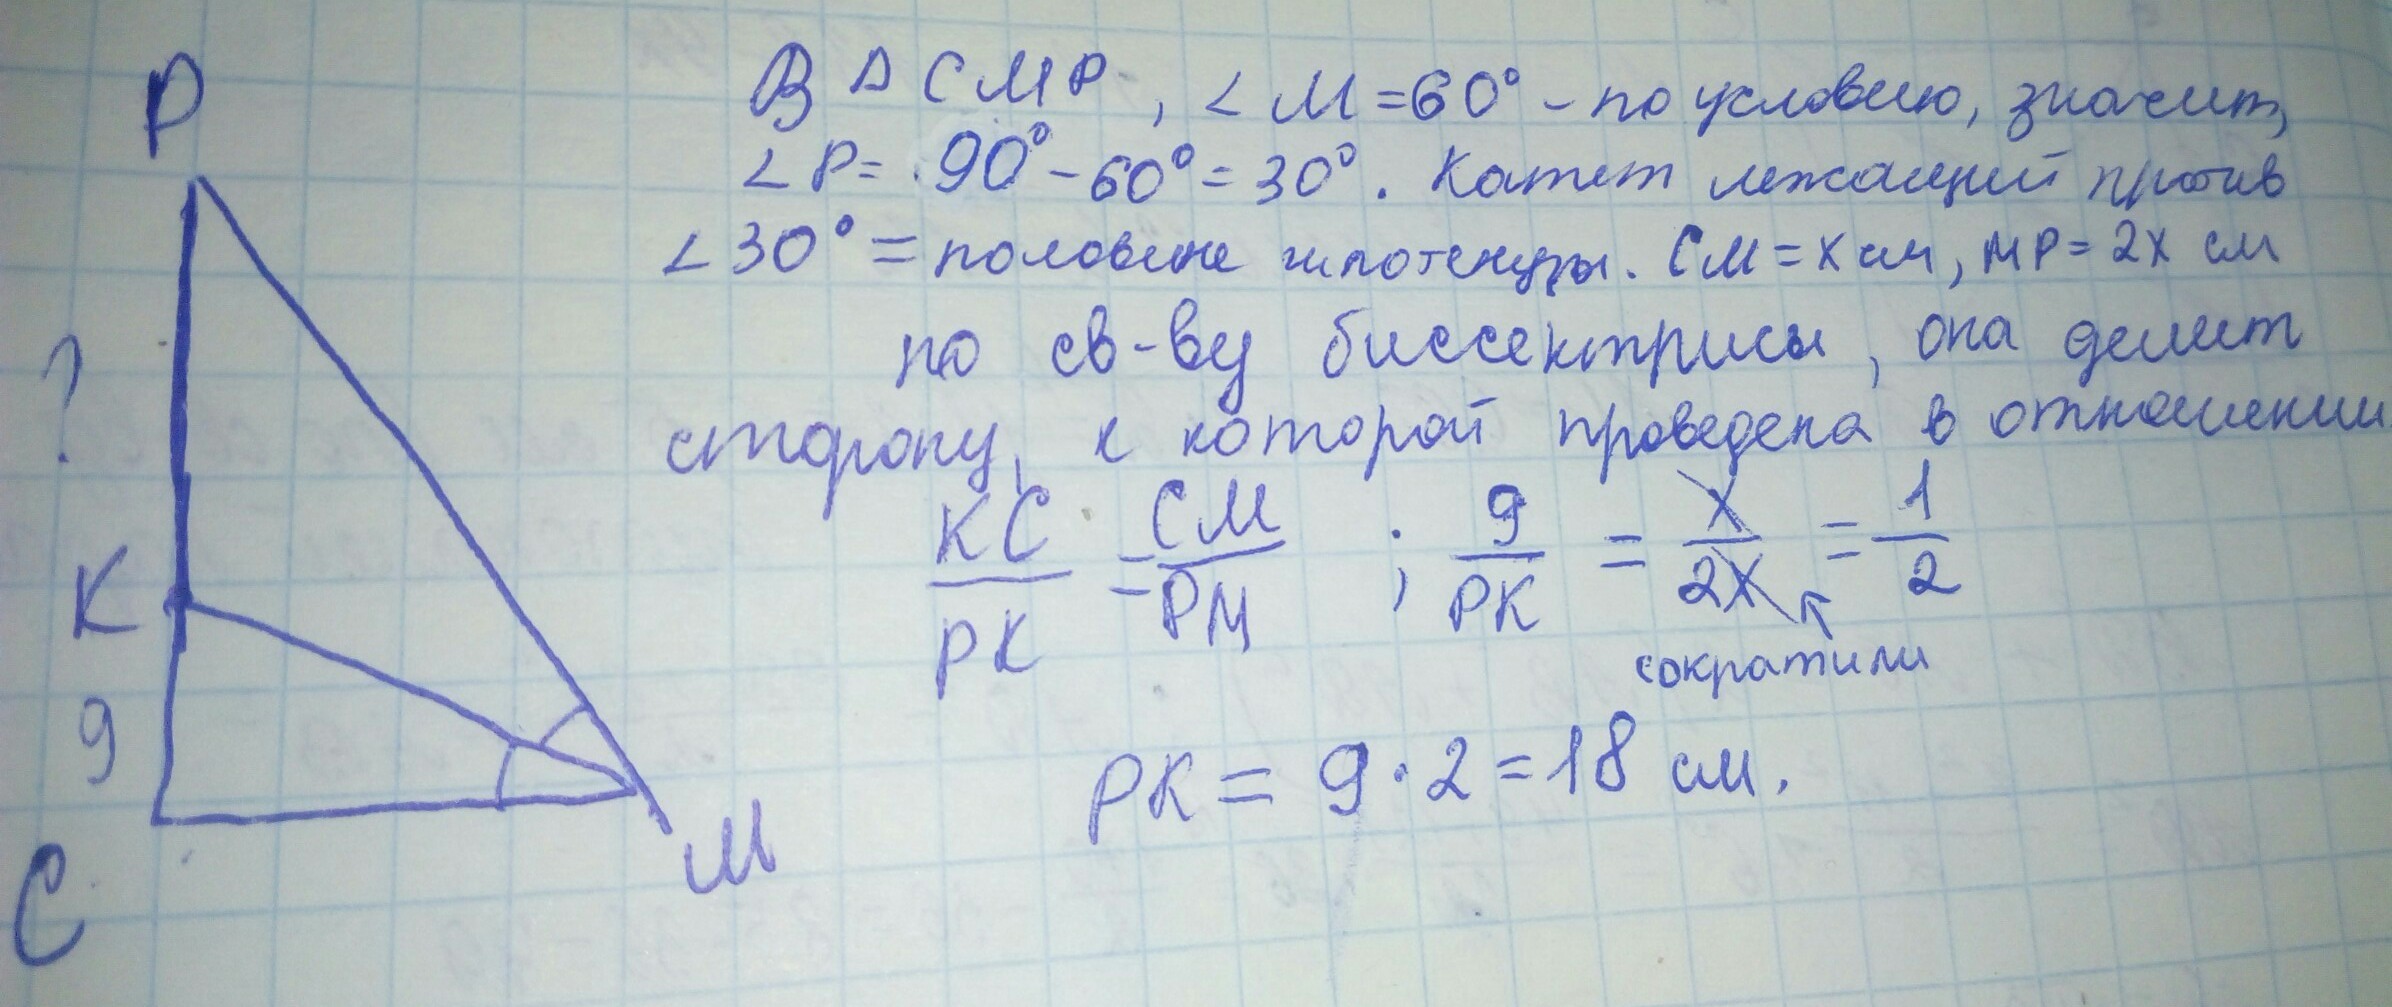 P
?
K
9
C
M
В Δ CMP, ∠M=60° - по условию, значит,
∠P= 90° - 60° = 30°. Катет лежащий против
∠30° = половине гипотенузы. CM = x см, MP = 2x см
по св-ву биссектрисы, она делит
сторону, к которой проведена в отношении
KC/PK = CM/PM ; 9/PK = x/2x = 1/2
сократили
PK = 9 · 2 = 18 см.